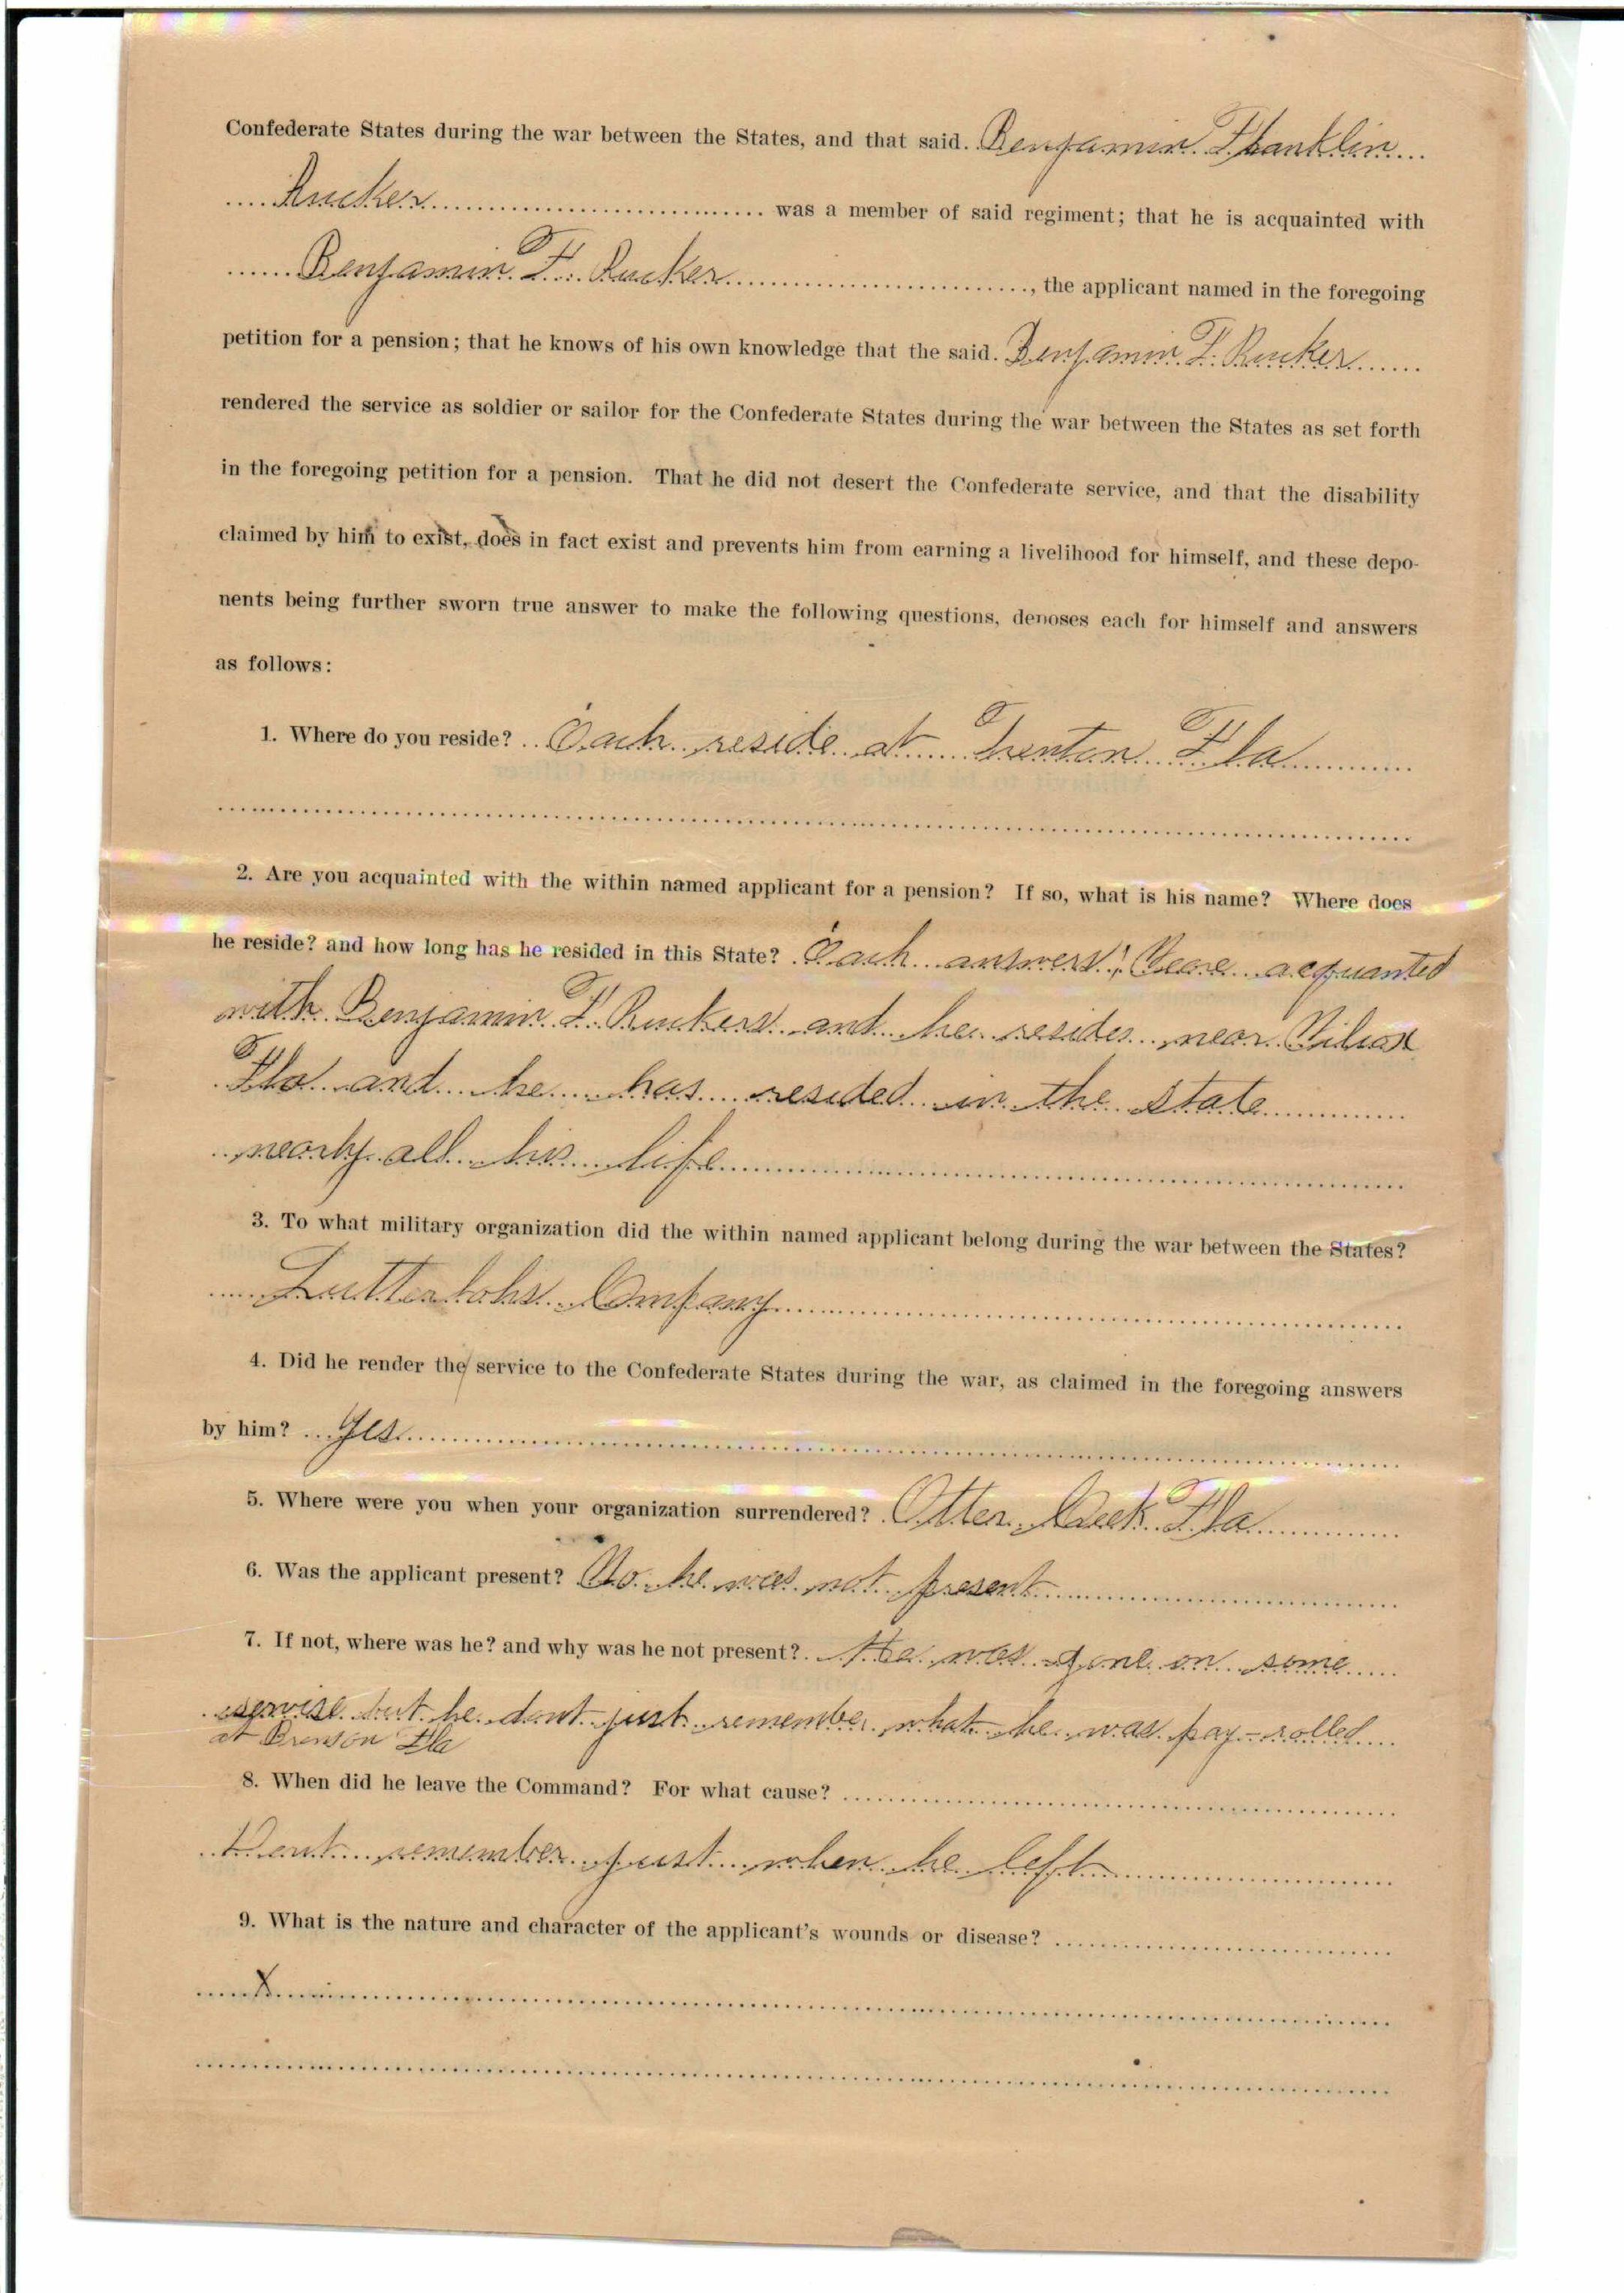 Confederate States during the war between the States, and that said. Benjamin Franklin
Rucker was a member of said regiment; that he is acquainted with
Benjamin F. Rucker, the applicant named in the foregoing
petition for a pension; that he knows of his own knowledge that the said. Benjamin F. Rucker
rendered the service as soldier or sailor for the Confederate States during the war between the States as set forth
in the foregoing petition for a pension. That he did not desert the Confederate service, and that the disability
claimed by him to exist, does in fact exist and prevents him from earning a livelihood for himself, and these depo-
nents being further sworn true answer to make the following questions, deposes each for himself and answers
as follows:
1. Where do you reside? Each reside at Trenton Fla
2. Are you acquainted with the within named applicant for a pension? If so, what is his name? Where does
he reside? and how long has he resided in this State? Each answers, acquanted
with Benjamin F. Ruckers and he resides near
Fla and he has resided in the state
nearly all his life
3. To what military organization did the within named applicant belong during the war between the States?
Lutterlohs Company
4. Did he render the service to the Confederate States during the war, as claimed in the foregoing answers
by him? Yes
5. Where were you when your organization surrendered? Otter Creek Fla
6. Was the applicant present? No he was not present
7. If not, where was he? and why was he not present? He was gone on some
servise but he dont just remember what he was pay-rolled
at Bronson Fla
8. When did he leave the Command? For what cause?
Dont remember just when he left
9. What is the nature and character of the applicant's wounds or disease?
X